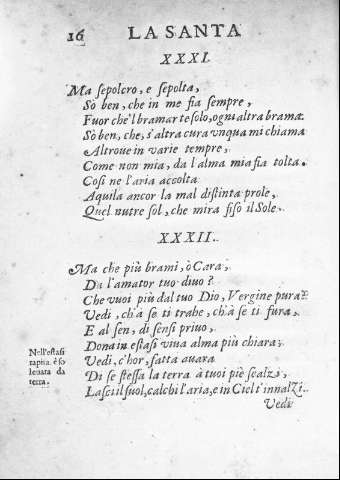 16 LA SANTA
XXXI.
Ma sepolcro, e sepolta,
Sò ben, che in me sia sempre,
Fuor che'l bramar te solo, ogni altra brama.
Sò ben, che, s'altra cura vnqua mi chiama
Altroue in varie tempre,
Come non mia, da l'alma mia sia tolta.
Così ne l'aria accolta
Aquila ancor la mal distinta prole,
Quel nutre sol, che mira fiso il Sole.
XXXII.
Ma che più brami, ò Cara,
Da l'amator tuo diuo?
Che vuoi più dal tuo Dio, Vergine pura?
Vedi, ch'à se ti trahe, ch'à se ti fura,
E al sen, di sensi priuo,
Dona in estasi viua alma più chiara.
Vedi, c'hor, fatta auara
Di se stessa la terra à tuoi piè scalzi,
Lasci il suol, calchi l'aria, e in Ciel t'innalzi.
Nell'estasi
rapita. è so
leuata da
terra.
Vedi